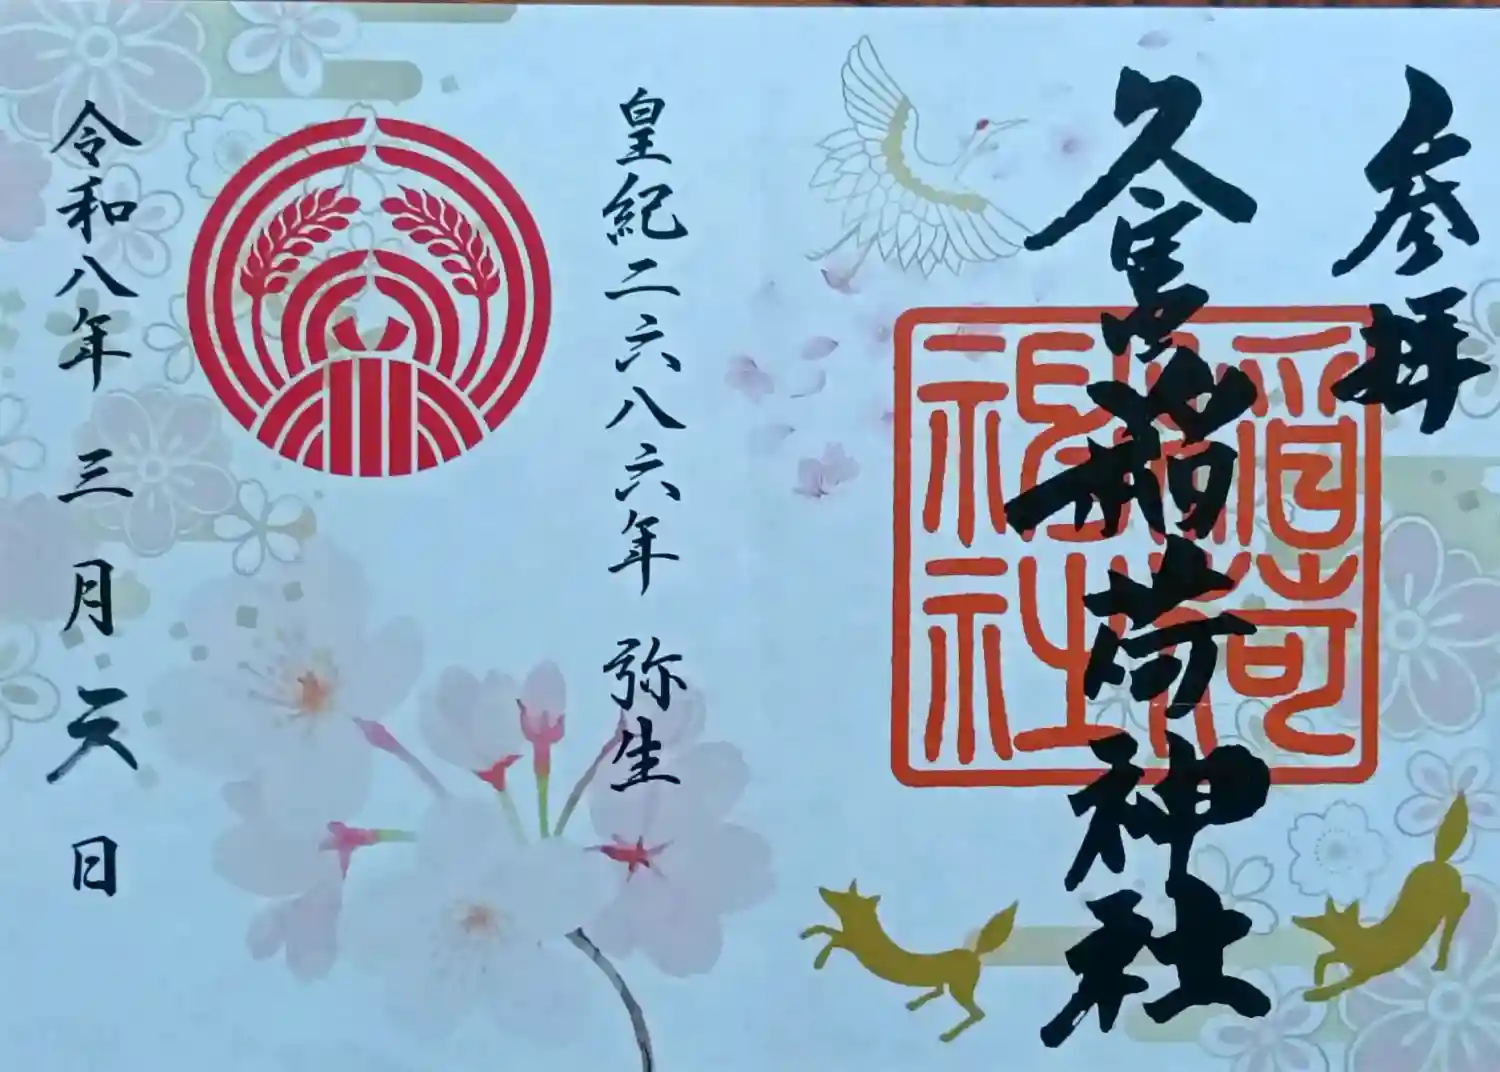 参拝
久富稲荷神社
稲荷神社
皇紀二六八六年 弥生
令和八年 三月六日